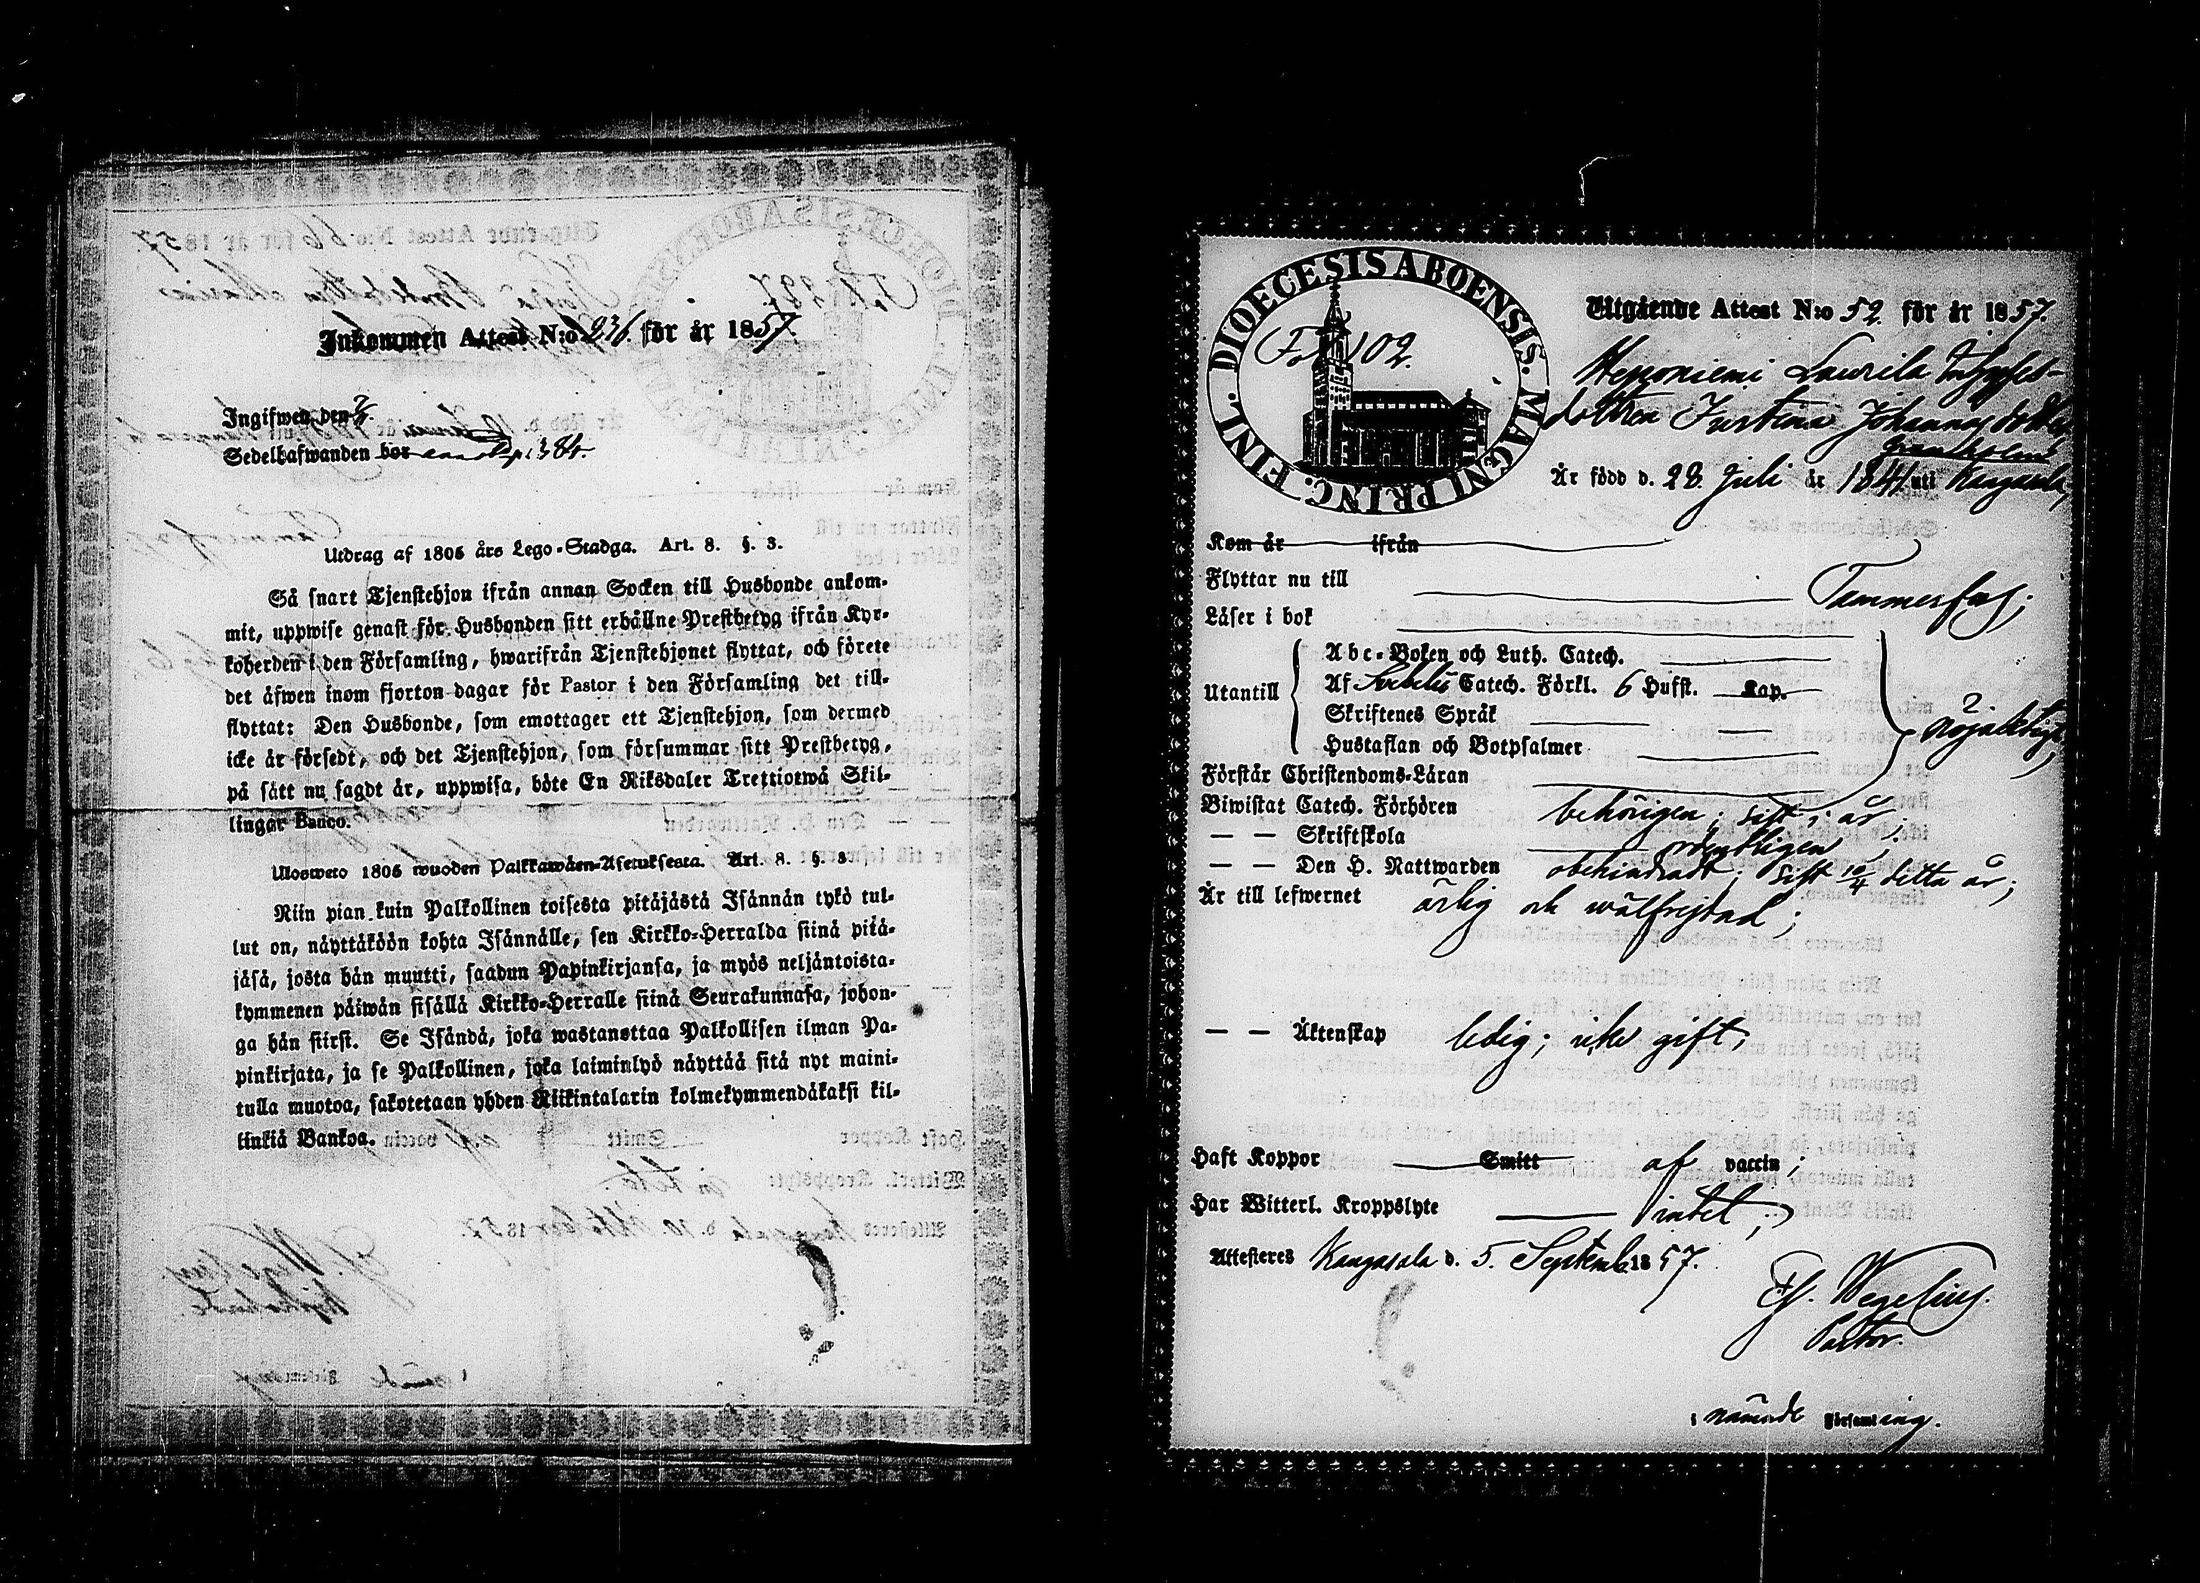 Inkommen Attest N:o 236. för år 1857.
Ingifwen den
Sedelhafwanden bor
Utdrag af 1805 års Lego-Stadga. Art. 8. §. 3.
Så snart Tjenstehjon ifrån annan Socken till Husbonde ankom-
mit, uppwise genast för Husbonden sitt erhållne Prestbetyg ifrån Kyr-
koherden i den Församling, hwarifrån Tjenstehjonet flyttat, och förete
det äfwen inom fjorton dagar för Pastor i den Församling det till-
flyttat: Den Husbonde, som emottager ett Tjenstehjon, som dermed
icke är försedt, och det Tjenstehjon, som försummar sitt Prestbetyg,
på sätt nu sagdt är, uppwisa, böte En Riksdaler Trettiotwå Skil-
lingar Banco.
Ulosweto 1805 wuoden Palkkawäen-Asetuksesta. Art. 8. §. 3
Niin pian kuin Palkollinen toisesta pitäjästä Isännän tykö tul-
lut on, näyttäköön kohta Isännälle, sen Kirkko-Herralda siinä pitä-
jäsä, josta hän muutti, saadun Papinkirjansa, ja myös neljäntoista-
kymmenen päiwän sisällä Kirkko-Herralle siinä Seurakunnasa, johon-
ga hän siirst. Se Isändä, joka wastanottaa Palkollisen ilman Pa-
pinkirjata, ja se Palkollinen, joka laiminlyö näyttää sitä nyt maini-
tulla muotoa, sakotetaan yhden Riikintalarin kolmekymmendäkaksi kil-
linkiä Bankoa.
DIOECESIS ABOENSIS. MAGNI PRINC. FINL.
Fol 102.
Utgående Attest N:o 52. för år 1857.
Hepponiemi Laurila
Justina Johannsdotter
Är född d. 28 Juli år 1841 uti Kangasala,
Kom år ifrån
Flyttar nu till Tammerfors;
Läser i bok
Utantill
Abc-Boken och Luth. Catech.
Af Svebelii Catech. Förkl. 6 Hufst. Kap.
Skriftenes Språk
Hustaflan och Botpsalmer
nöjaktigt,
Förstår Christendoms-Läran
Biwistat Catech. Förhören behörigen; sist i år;
— — Skriftskola ordentligen;
— — Den H. Nattwarden obehindradt; sist 10/4 detta år;
Är till lefwernet ärlig och wälfrejdad;
— — Äktenskap ledig; icke gift;
Haft Koppor Smitt af vaccin;
Har Witterl. Kroppslyte intet;
Attesteras Kangasala d. 5. Septemb. 1857.
Wegelius.
Pastor.
i nämnde Församling.